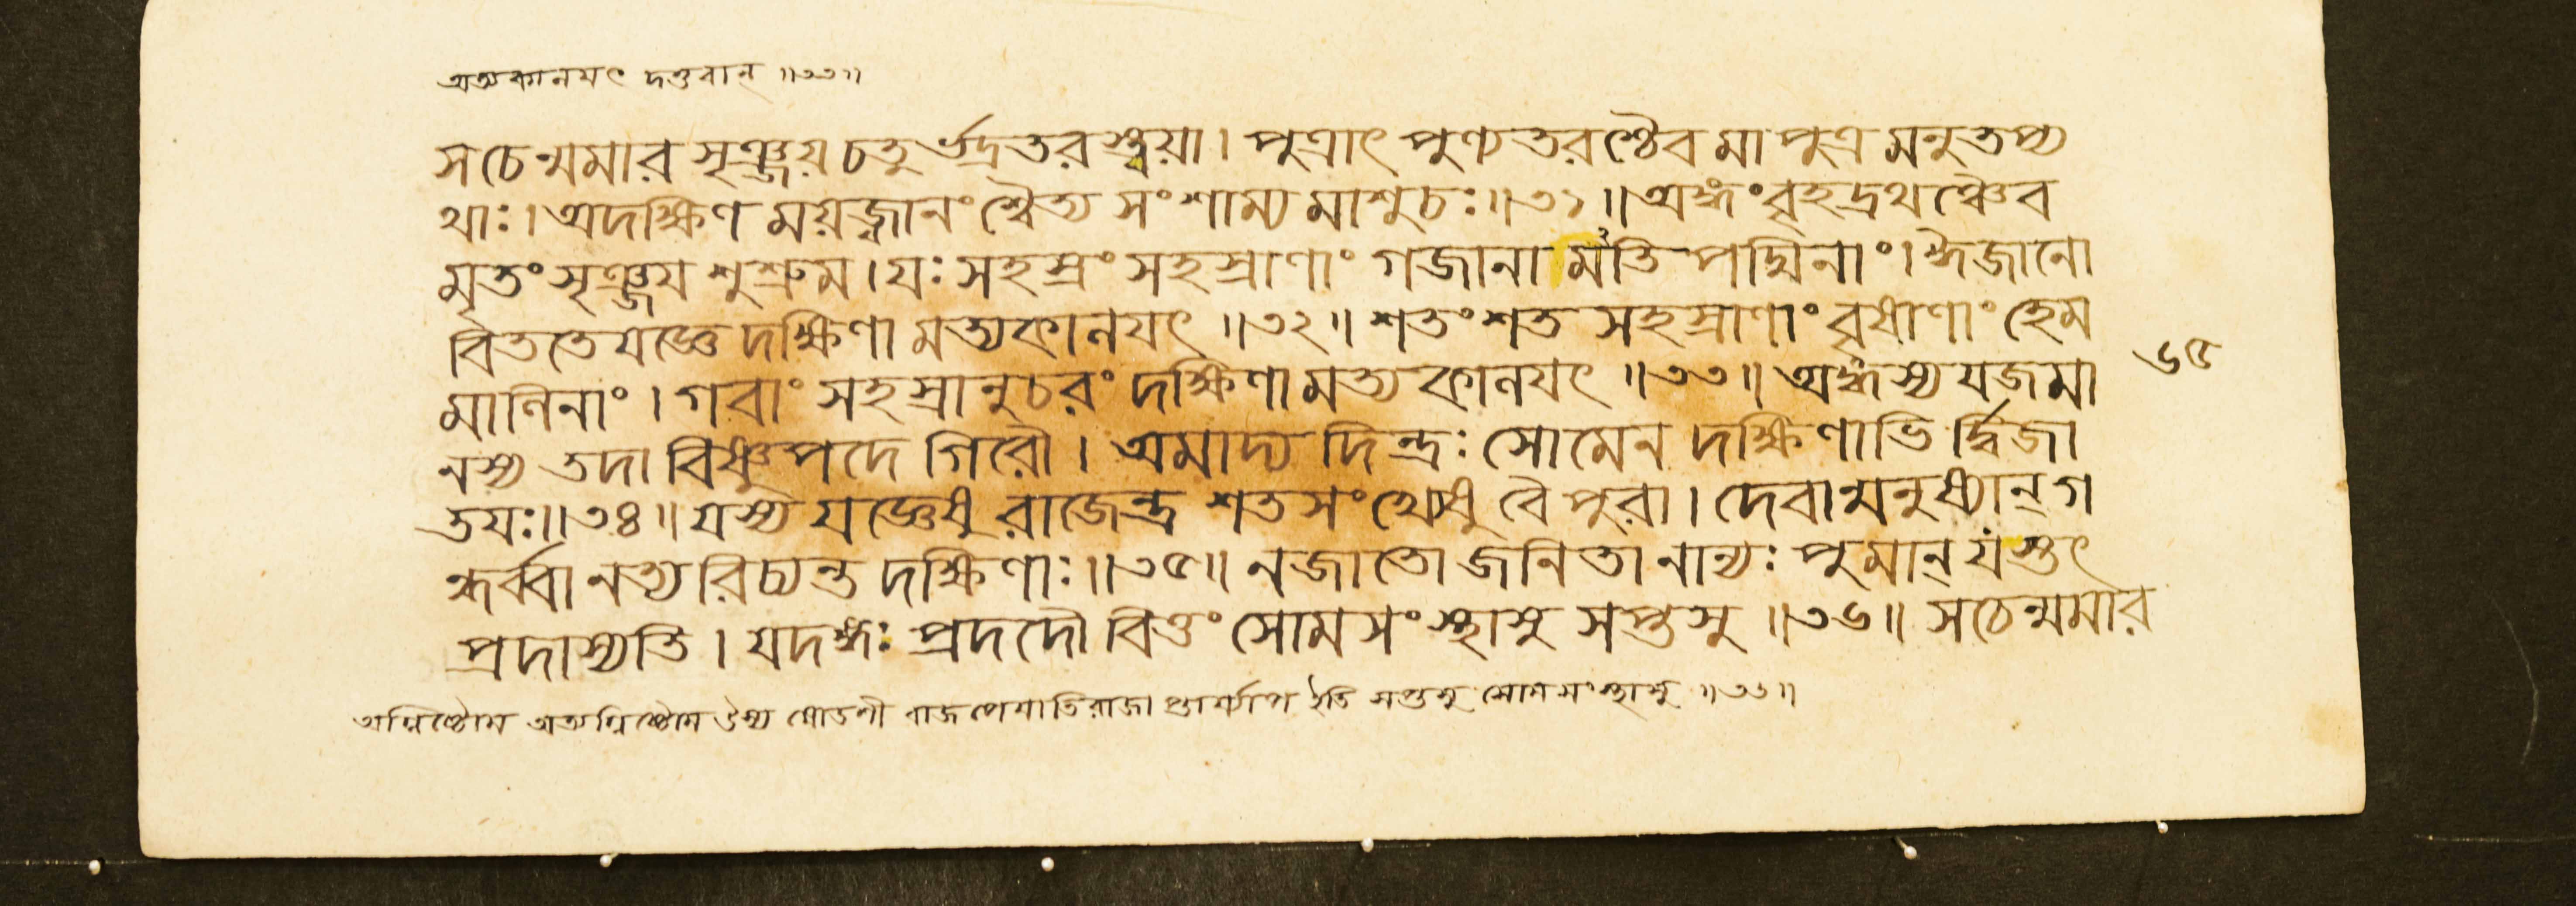 অত্যকানয়ৎ দত্তবান্ ॥৩৩॥
স চেন্মমার সৃঞ্জয় চতুর্ভদ্রতরস্ত্বয়া । পুত্রাৎ পুণ্যতরশ্চৈব মা পুত্রমনুতপ্য
থাঃ । অদক্ষিণময়জ্বানং শ্বৈত্য সংশাম্য মা শুচঃ ॥৩১॥ অঙ্গং বৃহদ্রথঞ্চৈব
মৃতং সৃঞ্জয় শুশ্রুম । যঃ সহস্রং সহস্রাণাং গজানামতি পদ্মিনাং । ঈজানো
বিততে যজ্ঞে দক্ষিণামত্যকানয়ৎ ॥৩২॥ শতং শত সহস্রাণাং বৃষাণাং হেম
মালিনাং । গবাং সহস্রানুচরং দক্ষিণামত্যকানয়ৎ ॥৩৩॥ অঙ্গস্য যজমা
নস্য তদা বিষ্ণুপদে গিরৌ । অমাদ্যদিন্দ্রঃ সোমেন দক্ষিণাভির্দ্বিজা
তয়ঃ ॥৩৪॥ যস্য যজ্ঞেষু রাজেন্দ্র শতসংখ্যেষু বৈ পুরা । দেবান্মনুষ্যান্ গ
ন্ধর্ব্বানত্যরিচ্যন্ত দক্ষিণাঃ ॥৩৫॥ ন জাতো জনিতা নান্যঃ পুমান্ যস্তৎ
প্রদাস্যতি । যদঙ্গঃ প্রদদৌ বিত্তং সোমসংস্থাসু সপ্তসু ॥৩৬॥ স চেন্মমার
৬৫
অগ্নিষ্টোম অত্যগ্নিষ্টোম উক্থ্য ষোডশী বাজপেয়াতিরাত্রা প্তোর্য্যাম ইতি সপ্তসু সোমসংস্থাসু ॥৩৬॥